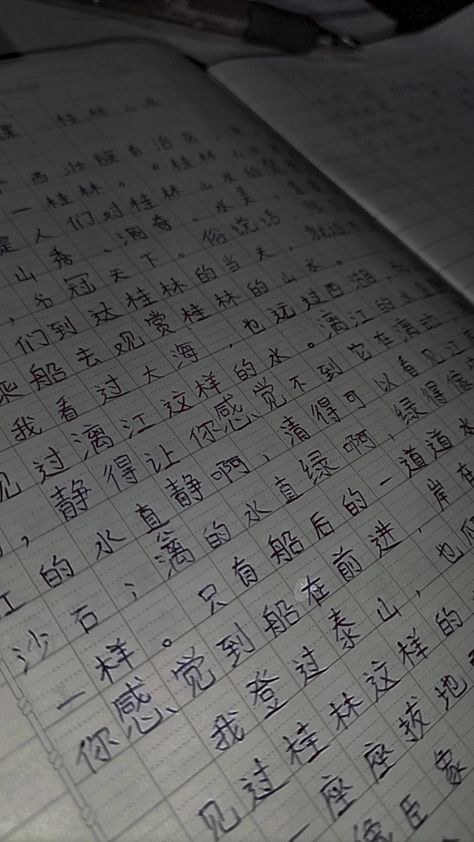 课 桂林山水
西壮族自治区，
一桂林。“桂林
是人们对桂林山水的
山秀、洞奇、水美，
，名冠天下。俗说话，
们到达桂林的当天，就
乘船去观赏桂林的山水。
我看过大海，也远过西湖，
见过漓江这样的水。漓江的水直
，静得让你感觉不到它在漓动，
江的水直静啊，清得可以看见江
沙石；漓的水直绿啊，绿得
一样。只有船后的一道道水
你感觉到船在前进，岸在
我登过泰山，也
见过桂林这样的
一座座拔地
像巨象